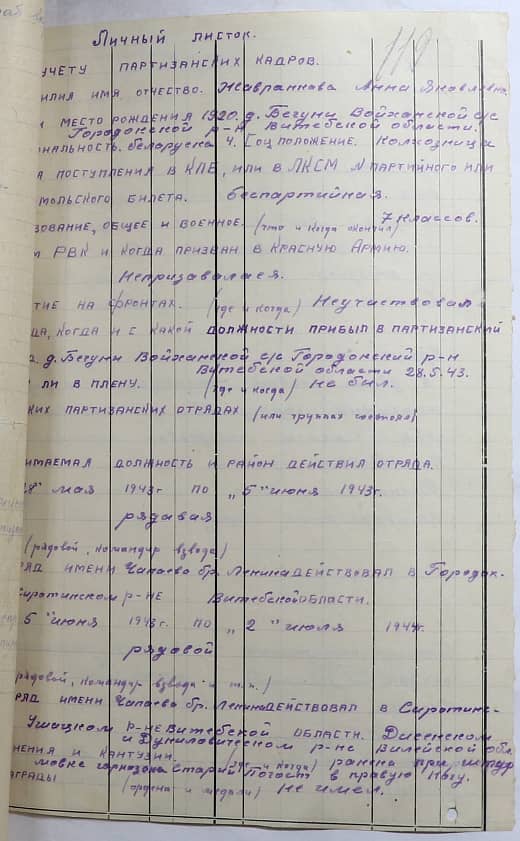 110
Личный листок.
УЧЕТУ ПАРТИЗАНСКИХ КАДРОВ.
ИЛИЯ ИМЯ ОТЧЕСТВО. Жавранкова Анна Яковлевна
И МЕСТО РОЖДЕНИЯ 1920. д. Бегуни Войханской с/с
Городокской р-н Витебской области.
ОНАЛЬНОСТЬ. беларуска 4. СОЦ ПОЛОЖЕНИЕ. Колхозница
А ПОСТУПЛЕНИЯ В КПБ, ИЛИ В ЛКСМ N ПАРТИЙНОГО ИЛИ
МОЛЬСКОГО БИЛЕТА. беспартийная.
ЗОВАНИЕ, ОБЩЕЕ И ВОЕННОЕ. (что и когда окончил) 7 классов.
М РВК И КОГДА ПРИЗВАН В КРАСНУЮ АРМИЮ.
Непризавалася.
ТИЕ НА ФРОНТАХ. (где и когда) Неучаствовал
ДА, КОГДА И С КАКОЙ ДОЛЖНОСТИ ПРИБЫЛ В ПАРТИЗАНСКИЙ
д. Бегуни Войханской с/с Городокский р-н
Витебской области 28.5.43.
ЛИ В ПЛЕНУ. (где и когда) Не был.
КИХ ПАРТИЗАНСКИХ ОТРЯДАХ (или группах состоял)
ИМАЕМАЯ ДОЛЖНОСТЬ И РАЙОН ДЕЙСТВИЯ ОТРЯДА.
28" мая 1943 г. по „5" июня 1943 г.
рядавая
(рядовой, командир взвода)
РЯД ИМЕНИ Чапаева бр. Ленина ДЕЙСТВОВАЛ В Городок-
Сиротинском Р-НЕ Витебской ОБЛАСТИ.
5 "июня 1943 г. по „ 2 " июля 1944 г.
рядовой
рядовой, командир взвода и т.п.)
РЯД ИМЕНИ Чапаева бр. Ленина ДЕЙСТВОВАЛ В Сиротинс-
Ушацком Р-НЕ Витебской ОБЛАСТИ. Дисенском
и Дуниловическом р-не Вилейской обл.
НЕНИЯ И КАНТУЗИИ. (где и когда) ранена при штур
мовке гарнезона старий Погост в правую ногу.
АГРАДЫ (ордена и медали) Не имел.